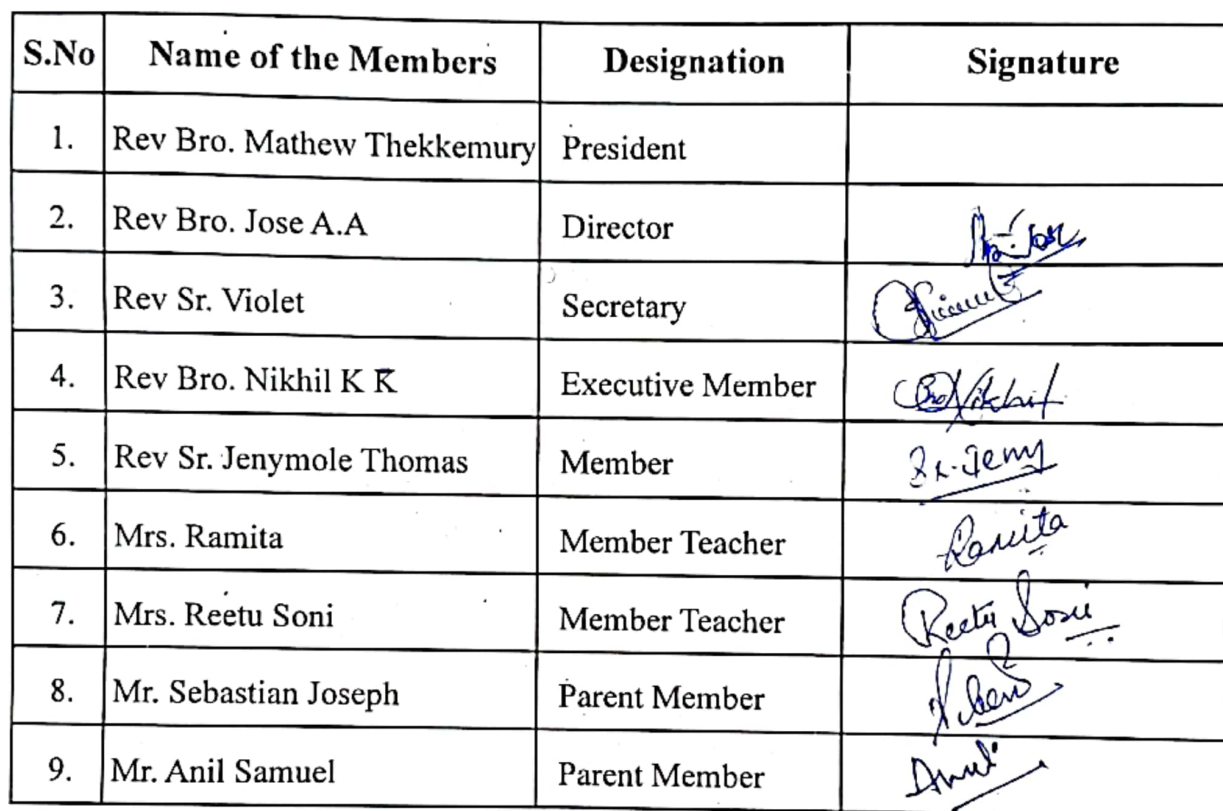 S.No Name of the Members Designation Signature
1. Rev Bro. Mathew Thekkemury President
2. Rev Bro. Jose A.A Director Bro. Jose
3. Rev Sr. Violet Secretary
4. Rev Bro. Nikhil K K Executive Member Bro Nikhil
5. Rev Sr. Jenymole Thomas Member Sr. Jeny
6. Mrs. Ramita Member Teacher Ramita
7. Mrs. Reetu Soni Member Teacher Reetu Soni
8. Mr. Sebastian Joseph Parent Member
9. Mr. Anil Samuel Parent Member